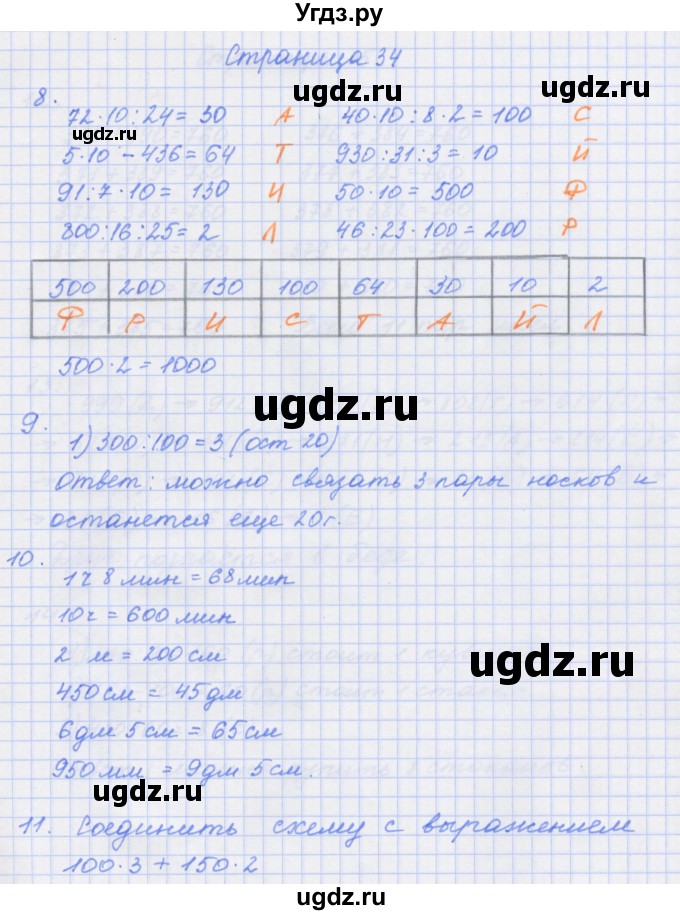 Угдз.ру
Страница 34
8.
72·10:24=30 А 40·10:8·2=100 С
5·10-436=64 Т 930:31:3=10 Й
91:7·10=130 И 50·10=500 Ф
800:16:25=2 Л 46:23·100=200 Р
500 200 130 100 64 30 10 2
Ф Р И С Т А Й Л
500·2=1000
9.
1) 300:100=3 (ост 20)
Ответ: можно связать 3 пары носков и
останется еще 20г.
10.
1ч 8 мин = 68мин
10ч = 600 мин
2 м = 200 см
450см = 45дм
6дм 5см = 65см
950мм = 9дм 5см.
11. Соединить схему с выражением
100·3+150·2
ugdz.ru
ugdz.ru
ugdz.ru
ugdz.ru
ugdz.ru
ugdz.ru
ugdz.ru
ugdz.ru
ugdz.ru